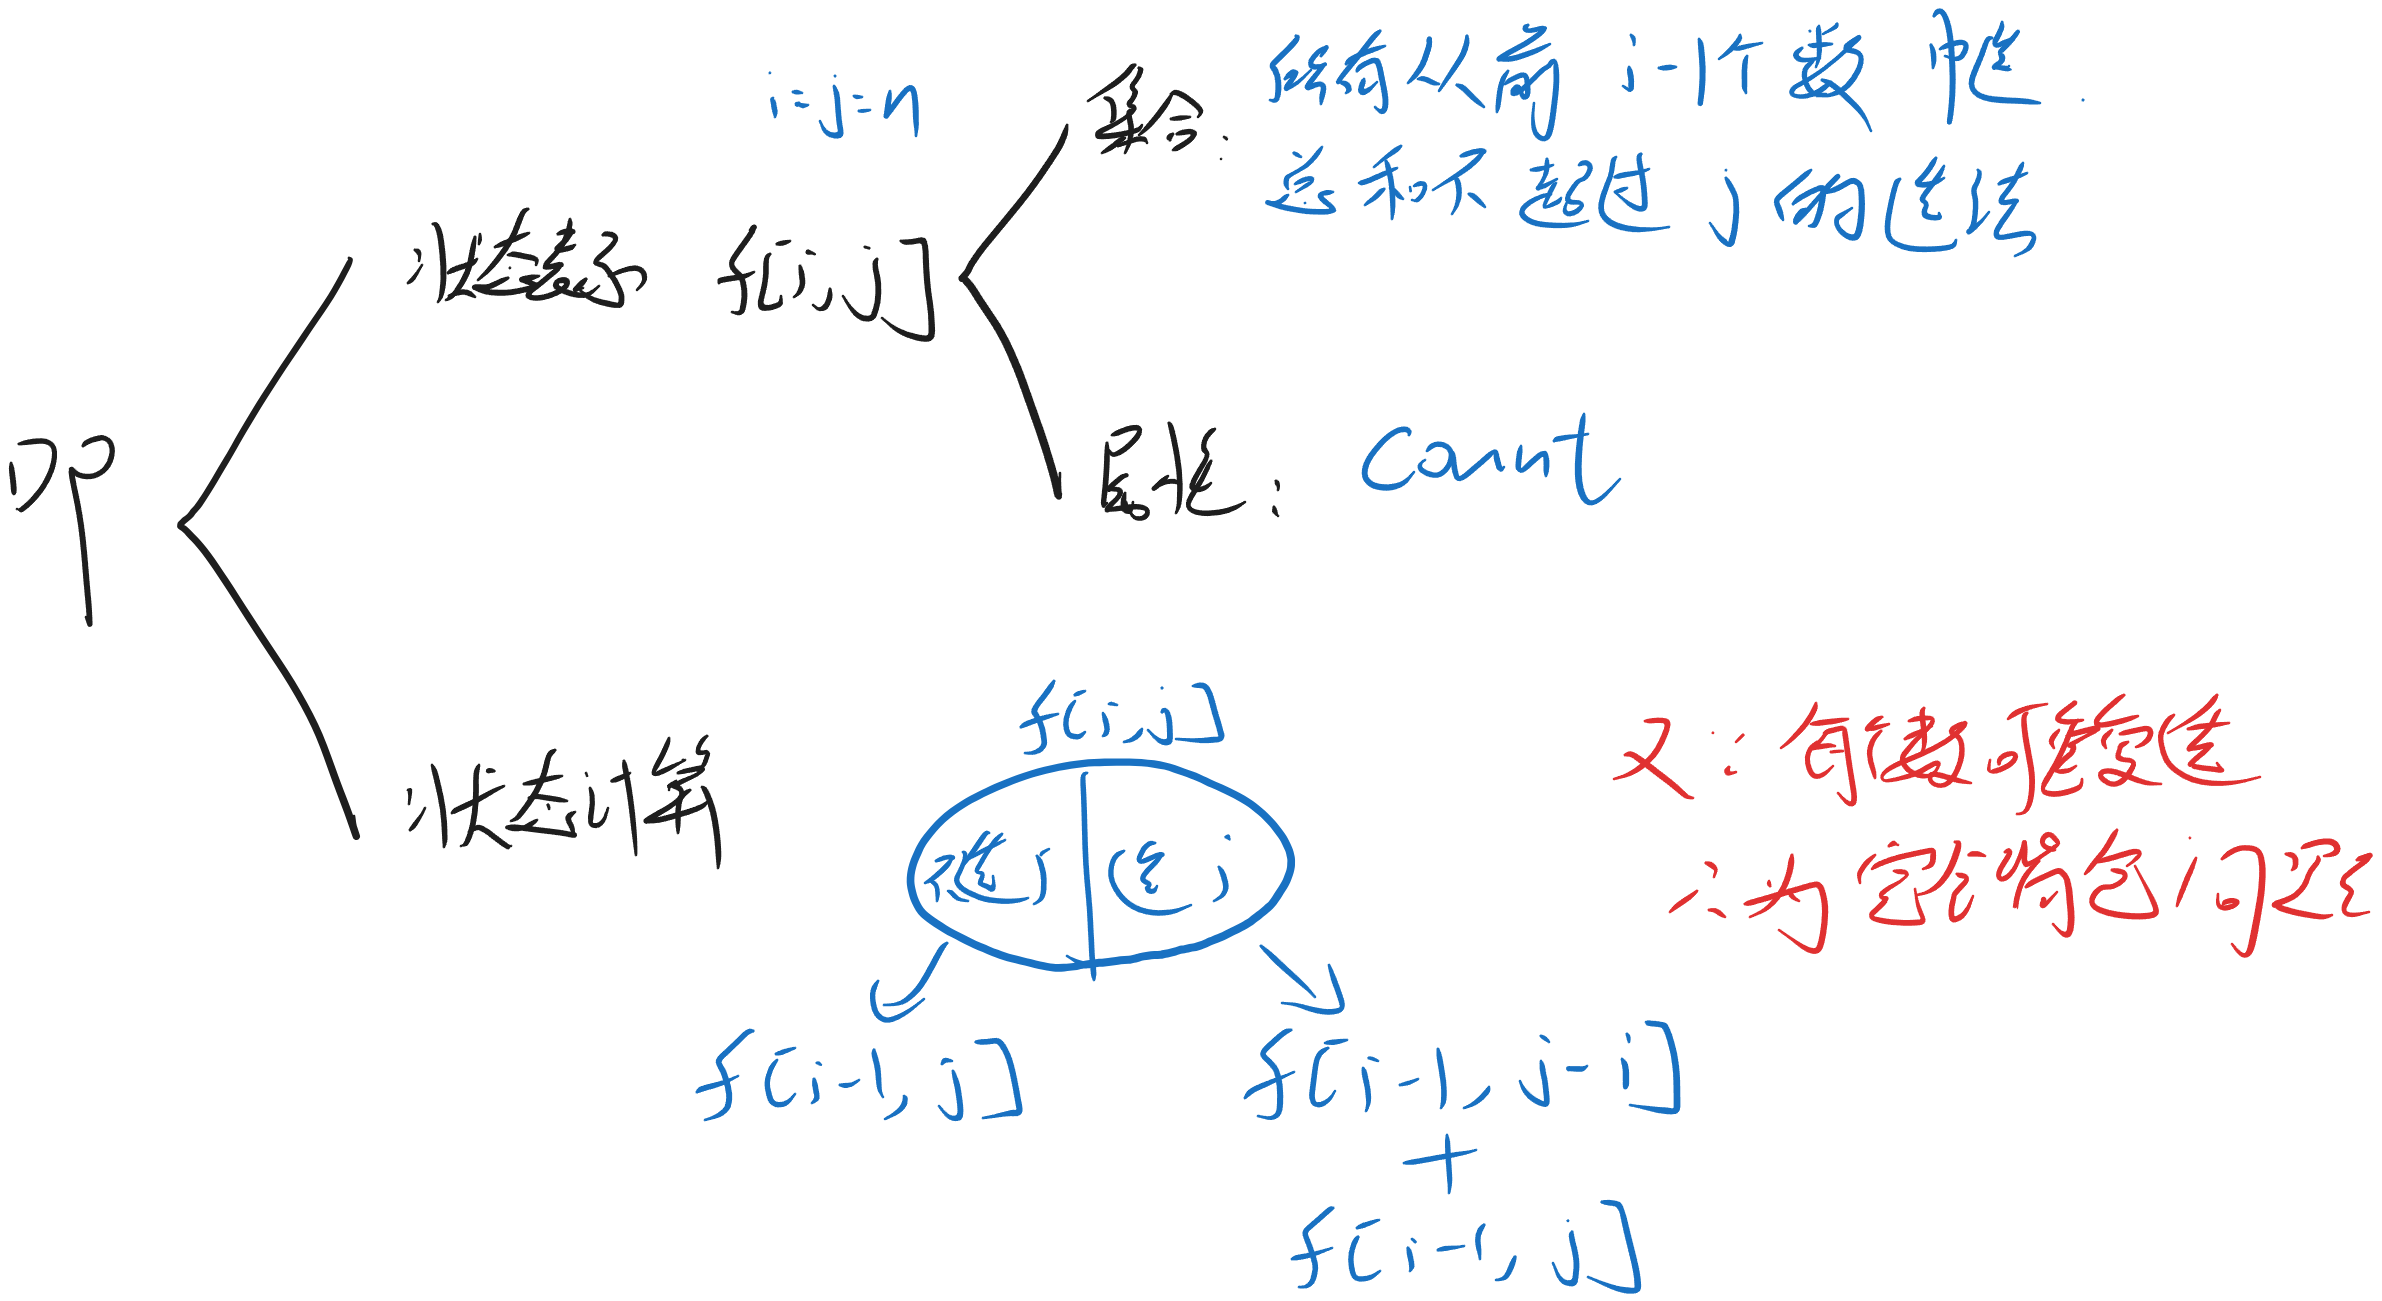 i=j=n
集合:
所有从前 i-1个数 中选.
总和不超过 j 的选法
状态表示 f[i, j]
DP
属性: Count
f[i, j]
又∵每个数可重复选
状态计算
不选j 选 i
∴为完全背包问题
f[i-1, j]
f[i-1, j-i]
+
f[i-1, j]